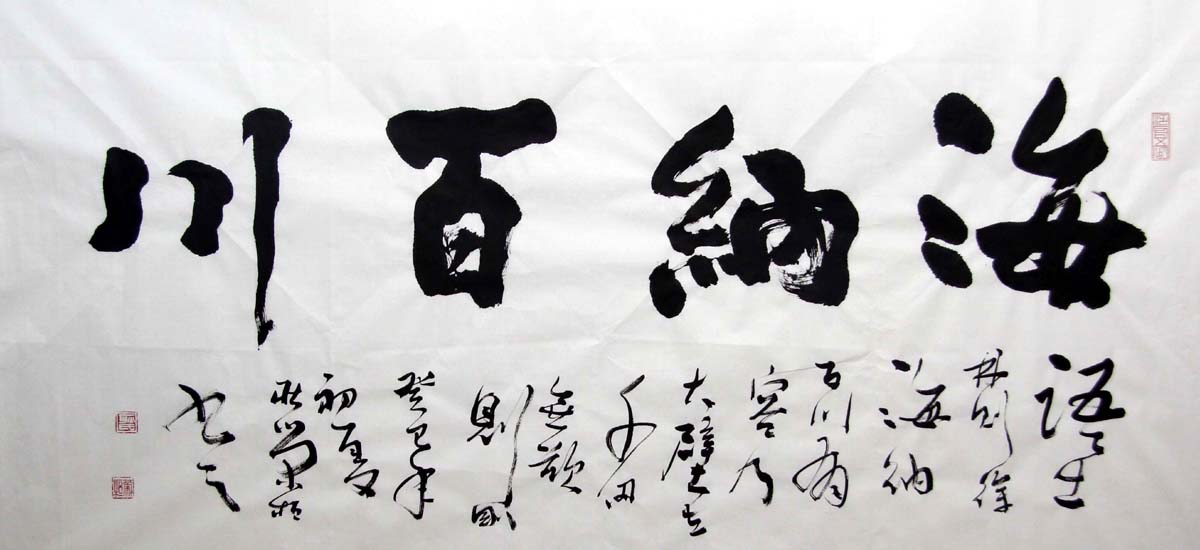 海納百川
林则徐
海納
百川有
容乃
大壁立
千仞
無欲
則剛
癸巳年
初夏